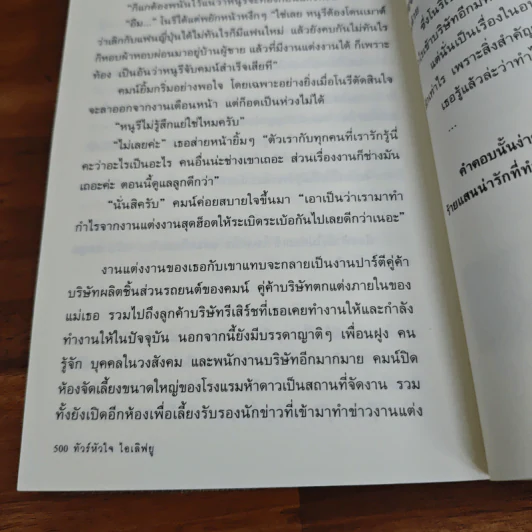 "ก็แกต้องพนันไว้แน่ว่าหนูรีจะต้อง
"อืม..." โนรีได้แต่พยักหน้าหงึกๆ "ใช่เลย หนูรีต้องโดนเมาต์
ว่าเลิกกับแฟนญี่ปุ่นได้ไม่ทันไรก็มีแฟนใหม่ แล้วยังคบกันไม่ทันไร
ก็หอบผ้าหอบผ่อนมาอยู่บ้านผู้ชาย แล้วที่มีงานแต่งงานได้ ก็เพราะ
ท้อง เป็นอันว่าหนูรีจับคมน์สำเร็จเสียที"
คมน์ยิ้มกริ่มอย่างพอใจ โดยเฉพาะอย่างยิ่งเมื่อโนรีตัดสินใจ
จะลาออกจากงานเดือนหน้า แต่ก็อดเป็นห่วงไม่ได้
"หนูรีไม่รู้สึกแย่ใช่ไหมครับ"
"ไม่เลยค่ะ" เธอส่ายหน้ายิ้มๆ "ตัวเรากับทุกคนที่เรารักรู้นี่
คะว่าอะไรเป็นอะไร คนอื่นน่ะช่างเขาเถอะ ส่วนเรื่องงานก็ช่างมัน
เถอะค่ะ ตอนนี้ดูแลลูกดีกว่า"
"นั่นสิครับ" คมน์ค่อยสบายใจขึ้นมา "เอาเป็นว่าเรามาทำ
กำไรจากงานแต่งงานสุดฮ็อตให้ระเบิดระเบ้อกันไปเลยดีกว่าเนอะ"
งานแต่งงานของเธอกับเขาแทบจะกลายเป็นงานปาร์ตีคู่ค้า
บริษัทผลิตชิ้นส่วนรถยนต์ของคมน์ คู่ค้าบริษัทตกแต่งภายในของ
แม่เธอ รวมไปถึงลูกค้าบริษัทรีเสิร์ชที่เธอเคยทำงานให้และกำลัง
ทำงานให้ในปัจจุบัน นอกจากนี้ยังมีบรรดาญาติๆ เพื่อนฝูง คน
รู้จัก บุคคลในวงสังคม และพนักงานบริษัทอีกมากมาย คมน์ปิด
ห้องจัดเลี้ยงขนาดใหญ่ของโรงแรมห้าดาวเป็นสถานที่จัดงาน รวม
ทั้งยังเปิดอีกห้องเพื่อเลี้ยงรับรองนักข่าวที่เข้ามาทำข่าวงานแต่ง
500 ทัวร์หัวใจ ไอเลิฟยู
ซึ่งโนรี
เข้าบริษัทอีกมา
แต่นั่นเป็นเรื่องในอ
ทำไร เพราะสิ่งสำคัญ
เธอรู้แล้วล่ะว่าทำไ
...
คำตอบนั้นง่าย
ร้ายแสนน่ารักที่ทำ